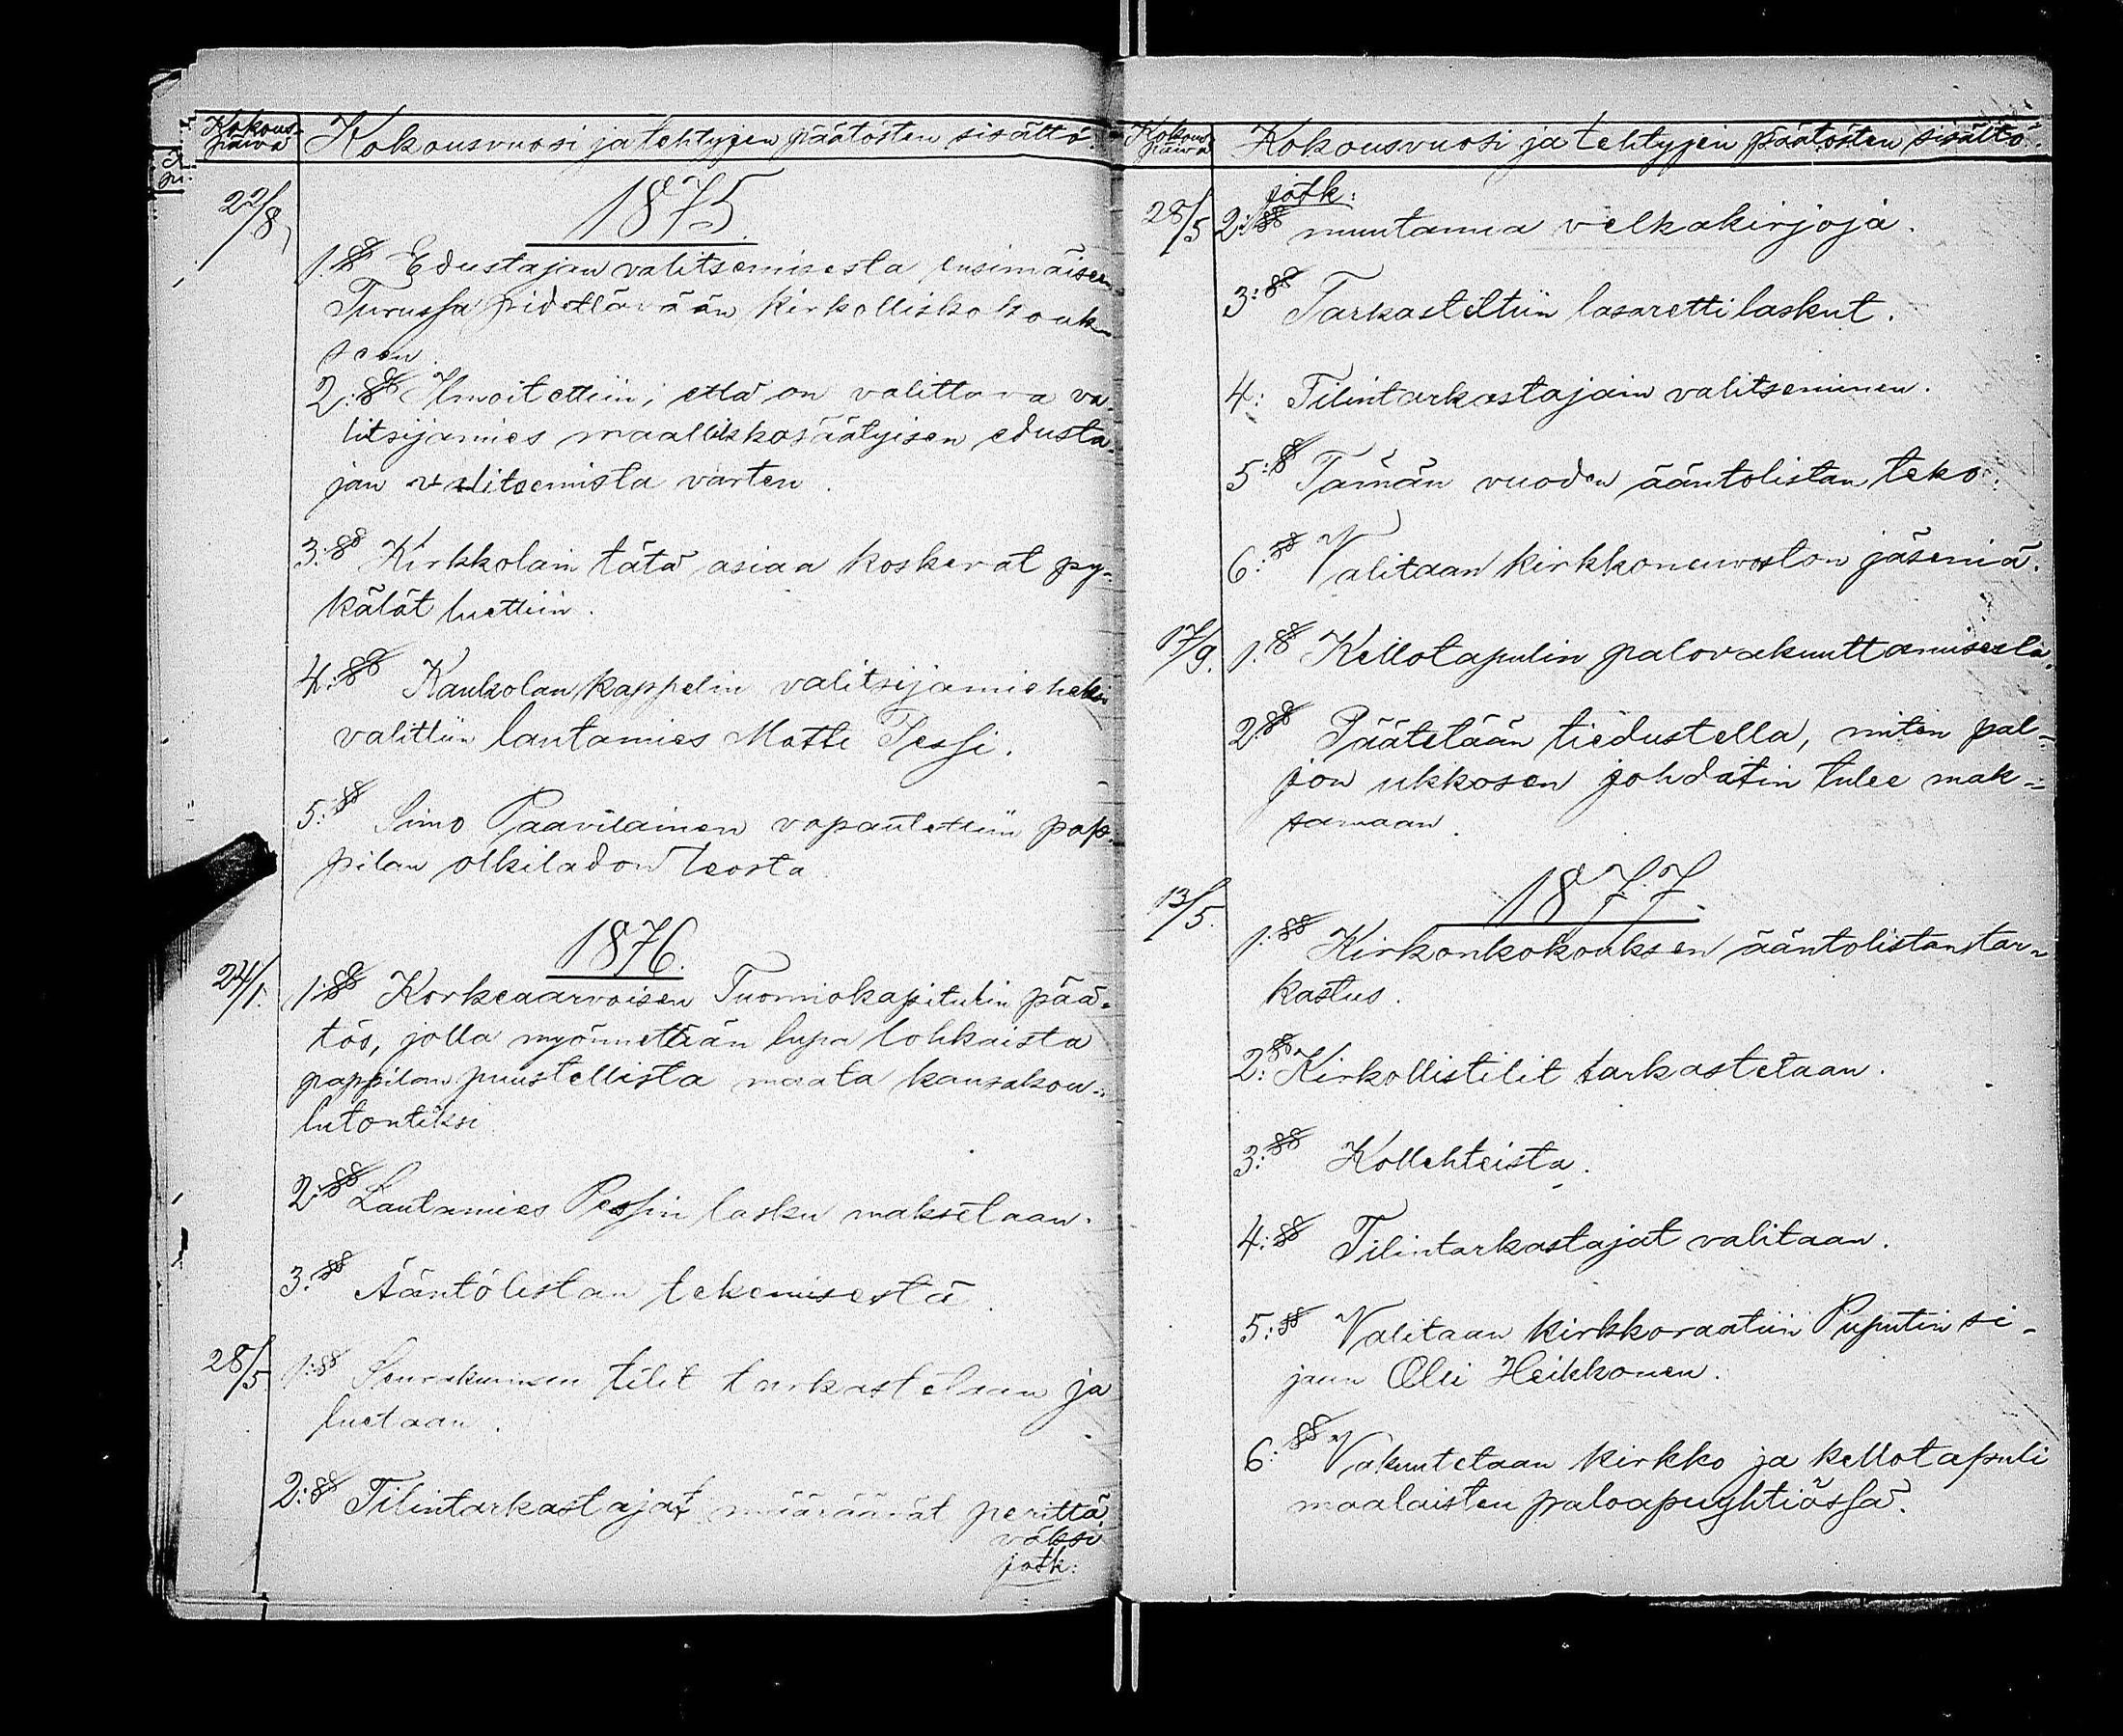 Kokous-
päivä
Kokousvuosi ja tehtyjen päätösten sisältö.
22/8
1875.
1.§§ Edustajan valitsemisesta ensimäiseen
Turussa pidettävään kirkolliskokouk-
seen.
2:§§ Ilmoitettiin, että on valittava va-
litsijamies maallikkosäätyisen edusta-
jan valitsemista varten.
3:§§ Kirkkolain tätä asiaa koskevat py-
kälät luettiin.
4:§§ Kaukolan kappelin valitsijamieheksi
valittiin lautamies Matti Pessi.
5:§§ Simo Paavilainen vapautettiin pap-
pilan olkiladon teosta.
1876.
24/1.
1:§§ Korkeaarvoisen Tuomiokapitulin pää-
tös, jolla myönnetään lupa lohkaista
pappilan puustellista maata kansakou-
lutontiksi
2:§§ Lautamies Pessin lasku maksetaan.
3:§§ Ääntölistan tekemisestä.
28/5
1:§§ Seurakunnan tilit tarkastetaan ja
luetaan.
2:§§ Tilintarkastajat määräävät perittä-
väksi
jatk:
Kokous-
päivä
Kokousvuosi ja tehtyjen päätösten sisältö.
jatk:
28/5 2:§§ muutamia velkakirjoja.
3:§§ Tarkasteltiin lasarettilaskut.
4: Tilintarkastajain valitseminen.
5:§ Tämän vuoden ääntolistan teko.
6:§§ Valitaan kirkkoneuvoston jäseniä.
17/9. 1.§§ Kellotapulin palovakuuttamisesta.
2§§ Päätetään tiedustella, miten pal-
jon ukkosen johdatin tulee mak-
samaan.
1877.
13/5.
1:§§ Kirkonkokouksen ääntolistan tar-
kastus.
2:§§ Kirkollistilit tarkastetaan.
3:§§ Kollehteista.
4:§§ Tilintarkastajat valitaan.
5:§§ Valitaan kirkkoraatiin Puputin si-
jaan Olli Heikkonen.
6:§§ Vakuutetaan kirkko ja kellotapuli
maalaisten paloapuyhtiössä.